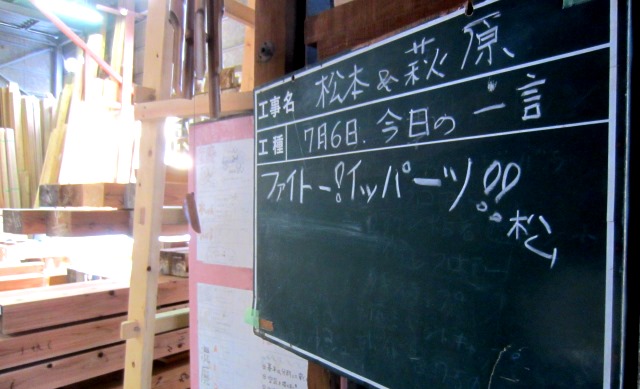 工事名 松本&萩原
工種 7月6日.今日の一言
ファイトー!イッパーツ!!
松